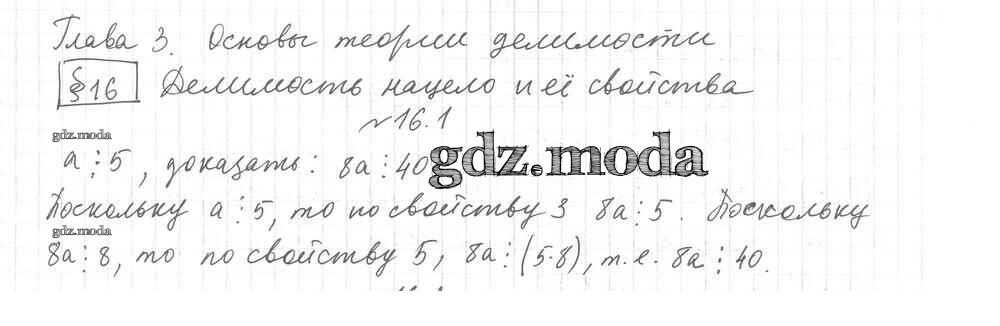 Глава 3. Основы теории делимости
§16 Делимость нацело и её свойства
№16.1
gdz.moda
a⋮5, доказать: 8a⋮40
gdz.moda
Поскольку a⋮5, то по свойству 3 8a⋮5. Поскольку
gdz.moda
8a⋮8, то по свойству 5, 8a⋮(5·8), т.е. 8a⋮40.